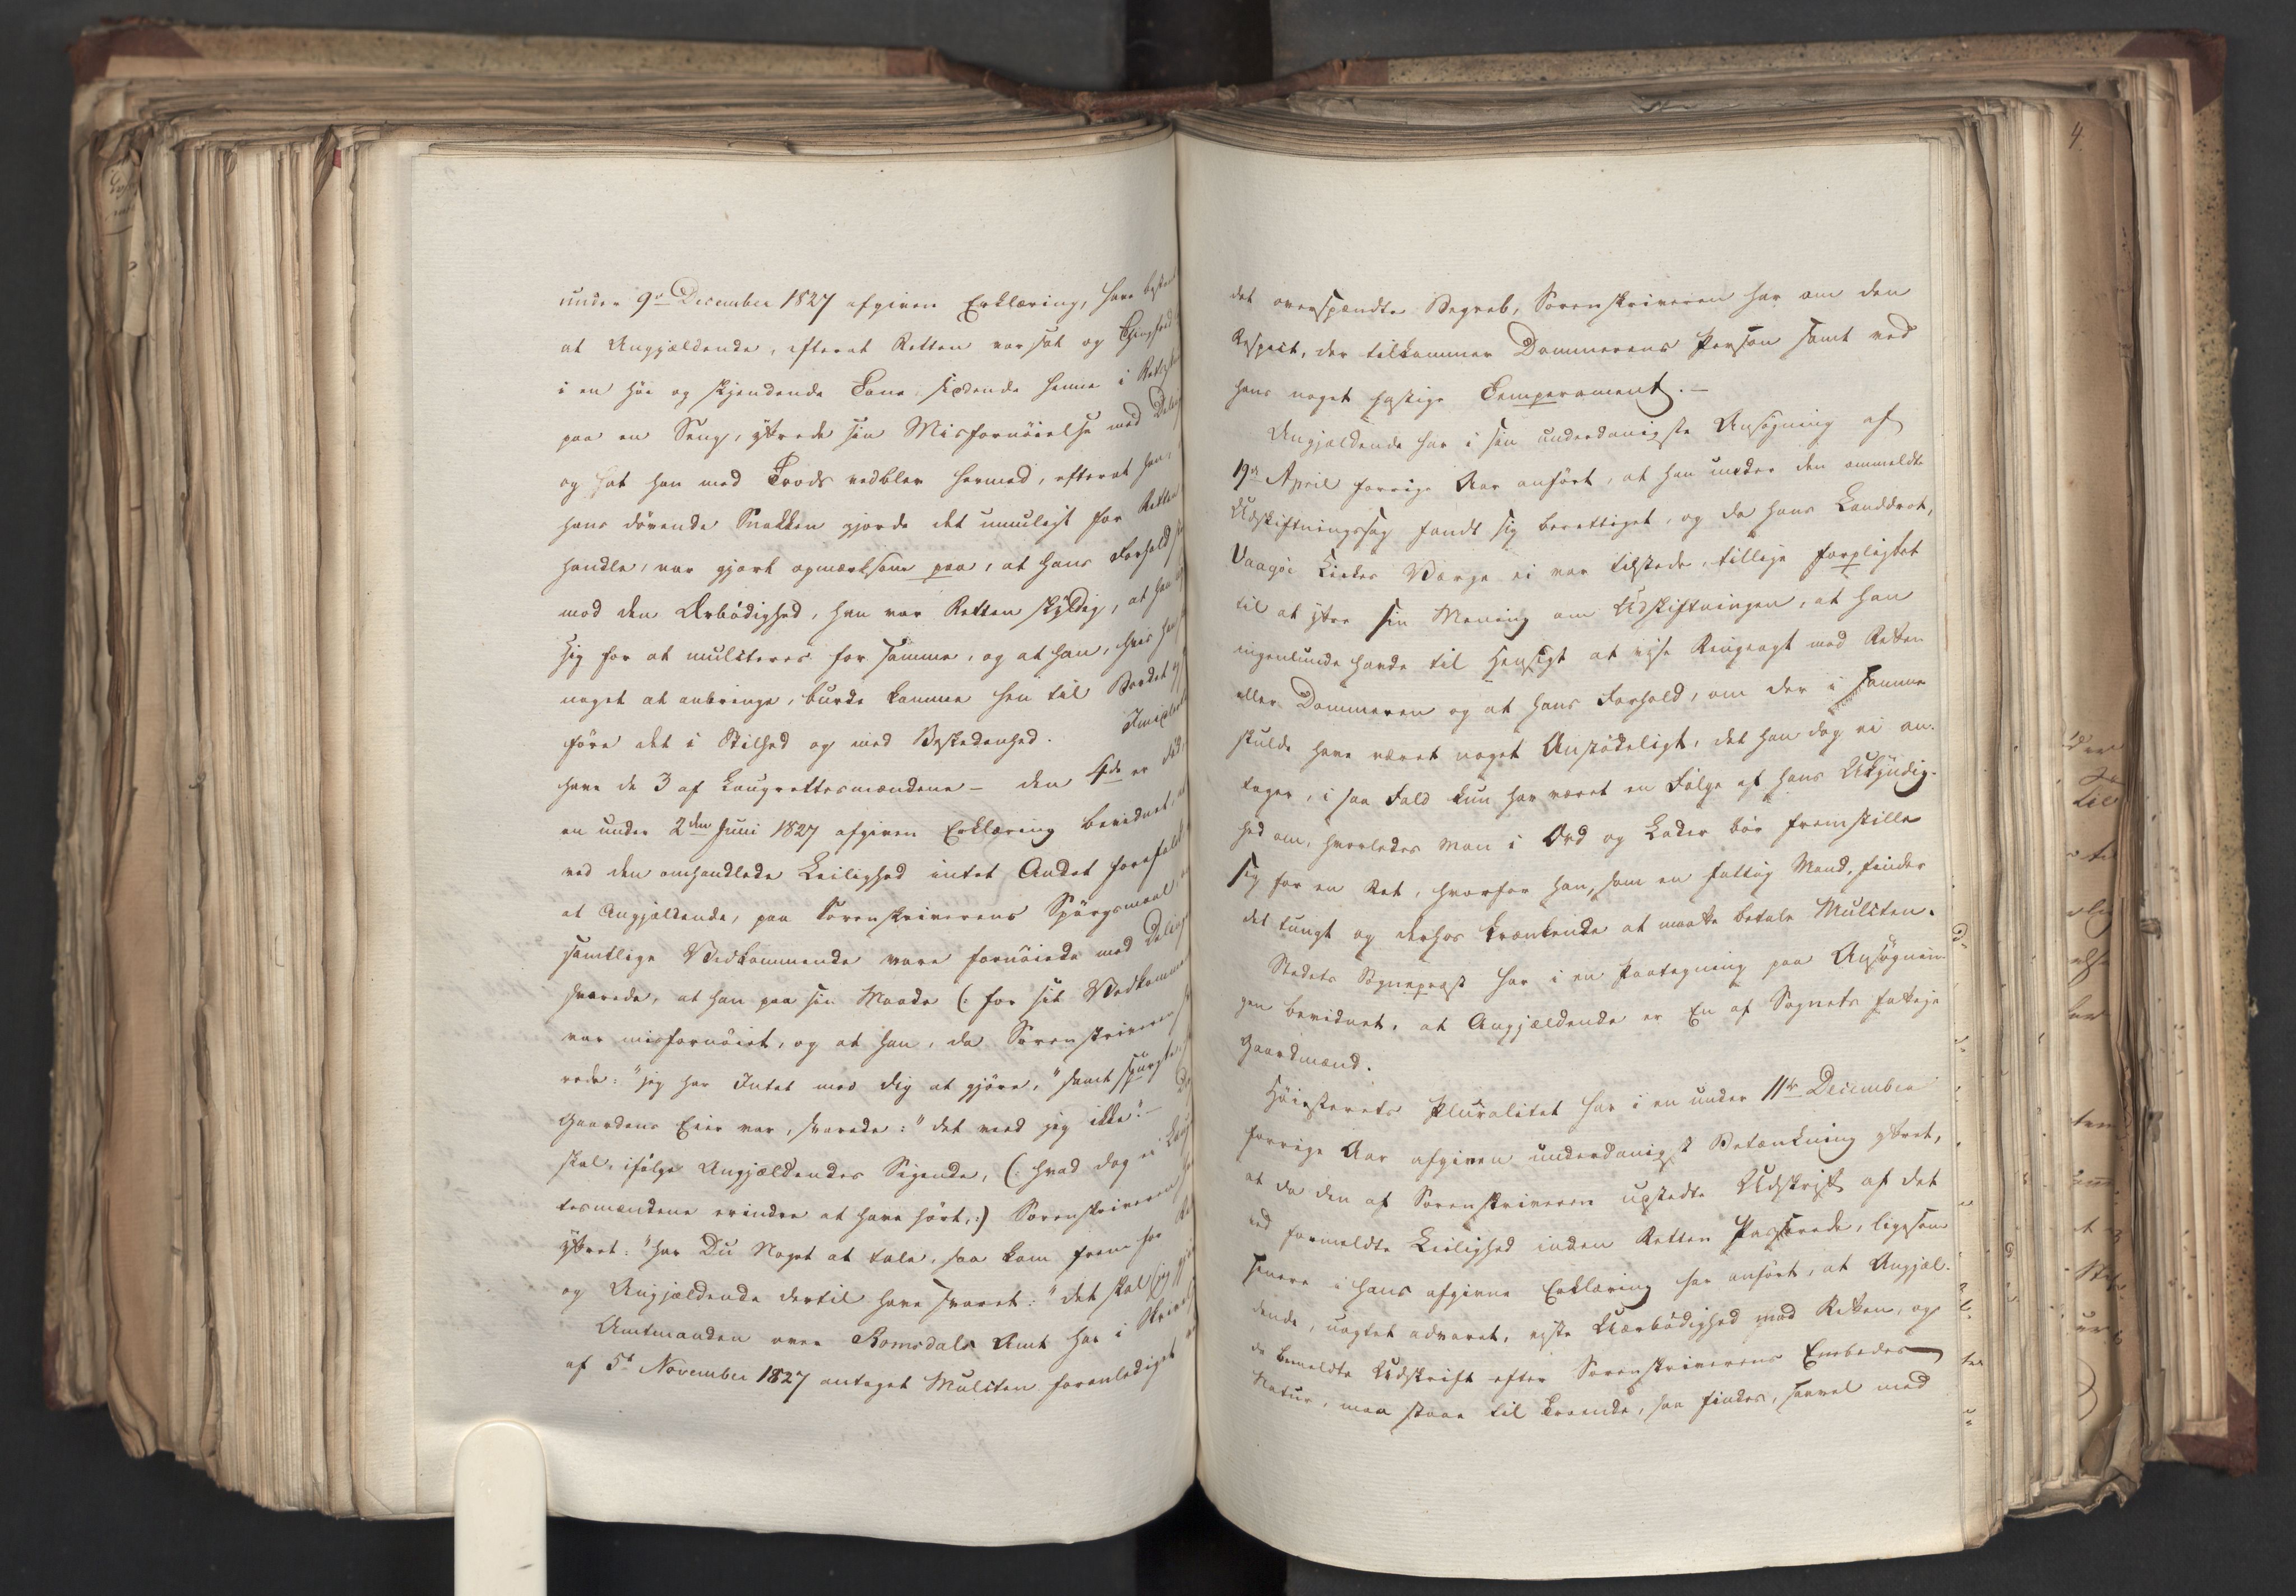 under 9de December 1827 afgiven Erklæring, have
at Angjældende, efterat Retten var sat og
i en höi og skjendende Tone, siddende henne i
paa en Seng, yttrede sin Misfornöielse med
og at han med Trods vedblev hermed, efterat han,
hans dövende Snakken gjorde det umuligt for Retten
handle, var gjort opmærksom paa, at hans Forhold
mod den Ærbödighed, han var Retten skyldig, at han
sig for at mulcteres for samme, og at han, hvis han
noget at anbringe, burde komme hen til Bordet
före det i Stilhed og med Beskedenhed.
have de 3 af Laugrettesmændene – den 4de er
en under 2den Juni 1827 afgiven Erklæring bevidnet,
ved den omhandlede Leilighed intet Andet forefaldt
at Angjældende, paa Sorenskriverens Spörgsmaal,
samtlige Vedkommende vare fornöiede med
svarede, at han paa sin Maade (: for sit
var misfornöiet, og at han, da Sorenskriveren
rede: "jeg har Intet med dig at gjöre," samt spurgte,
Gaardens Eier var, svarede: "det veed jeg ikke". –
skal, ifölge Angjældendes Sigende, (: hvad dog ei
tesmændene erindre at have hört, :) Sorenskriveren
yttret: "har Du Noget at tale, saa kom frem for
og Angjældende dertil have svaret: "det skal jeg
Amtmanden over Romsdals Amt har i
af 5te November 1827 antaget Mulcten foranlediget
det overspændte Begreb, Sorenskriveren har om den
Respect, der tilkommer Dommerens Person samt ved
hans noget hastige Temperament. –
Angjældende har i sin underdanigste Ansögning af
19de April forrige Aar anfört, at han under den ommeldte
Udskiftningssag fandt sig berettiget, og da hans Landdrot,
Vaagöe Kirkes Værge ei var tilstede, tillige forpligtet
til at yttre sin Mening om Udskiftningen, at han
ingenlunde havde til Hensigt at vise Ringeagt mod Retten
eller Dommeren og at hans Forhold, om der i samme
skulde have været noget Anstödeligt, det han dog ei an-
tager, i saa Fald kun har været en Fölge af hans Ukyndig-
hed om, hvorledes man i Ord og Lader bör fremstille
sig for en Ret, hvorfor han, som en fattig Mand, finder
det tungt og derhos krænkende at maatte betale Mulcten.
Stedets Sognepræst har i en Paategning paa Ansögnin-
gen bevidnet, at Angjældende er En af Sognets fattige
Gaardmænd.
Höiesterets Pluralitet har i en under 11te December
forrige Aar afgiven underdanigst Betænkning yttret,
at da den af Sorenskriveren udstedte Udskrift af det
ved formeldte Leilighed inden Retten Passerede, ligesom
senere i hans afgivne Erklæring har anfört, at Angjæl-
dende, uagtet advaret, viste Uærbödighed mod Retten, og
da bemeldte Udskrift efter Sorenskriverens Embedes
Natur, maa staae til Troende, saa findes, saavel med
4.